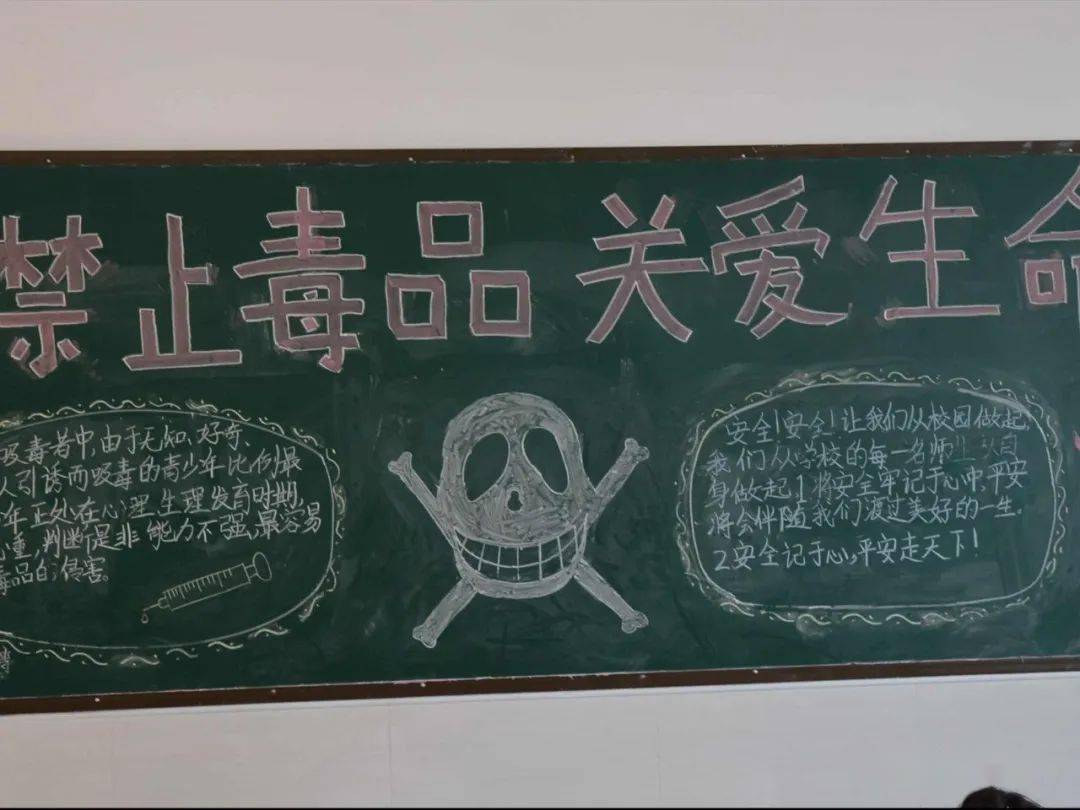 禁止毒品 关爱生命
吸毒者中,由于无知、好奇、
人引诱而吸毒的青少年比例最
年正处在心理生理发育时期,
重,判断是非能力不强,最容易
毒品的侵害。
安全!安全!让我们从校园做起,
我们从学校的每一名师生自
身做起1将安全牢记于心中,平安
将会伴随我们渡过美好的一生.
2安全记于心,平安走天下!